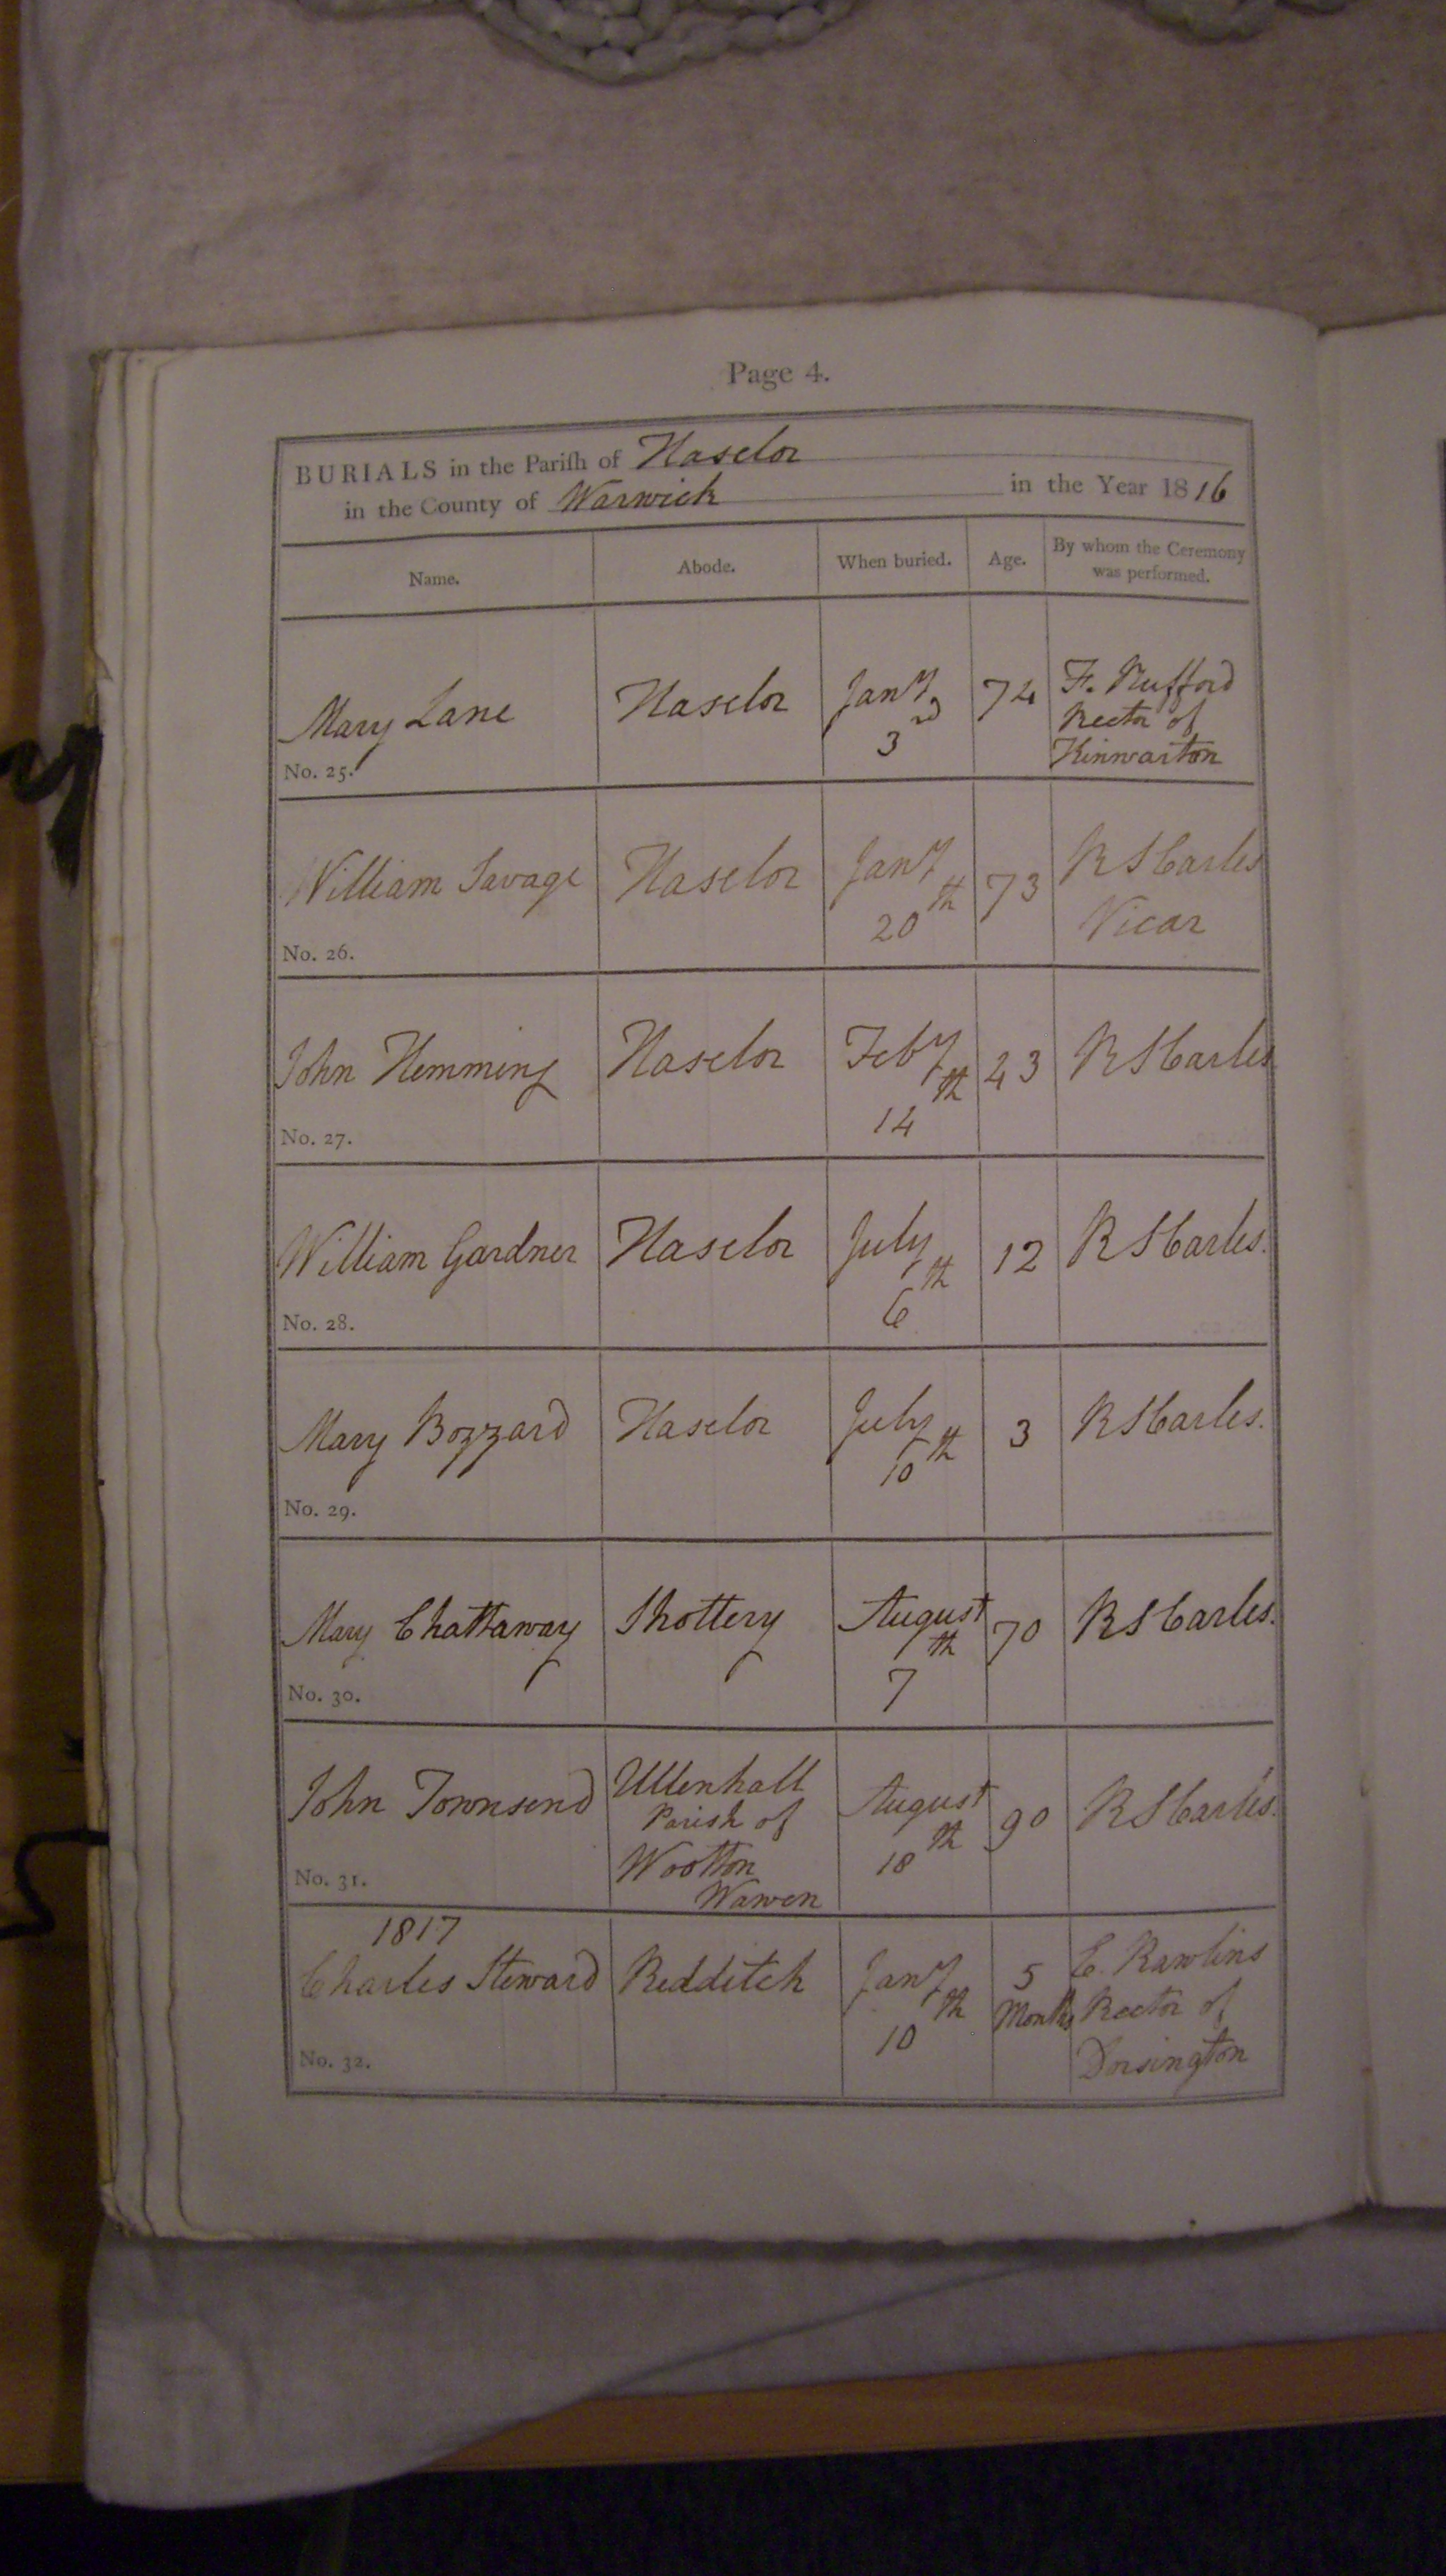 Page 4.
BURIALS in the Pariſh of Haselor
in the County of Warwick in the Year 1816
Name. Abode. When buried. Age. By whom the Ceremony
was performed.
Mary Lane Haselor Jany 3rd 74 F. Rufford
Rector of
Kinwarton
No. 25.
William Savage Haselor Jany 20th 73 R S Carles
Vicar
No. 26.
John Hemming Haselor Feby 14th 23 R S Carles
No. 27.
William Gardner Haselor July 6th 12 R S Carles.
No. 28.
Mary Bozzard Haselor July 10th 3 R S Carles.
No. 29.
Mary Chattaway Shottery August 7th 70 R S Carles.
No. 30.
John Townsend Ullenhall August 18th 90 R S Carles.
Parish of
Wootton
Wawen
No. 31.
1817
Charles Steward Redditch Jany 10th 5 Months C. Rawlins
Rector of
Dorsington
No. 32.